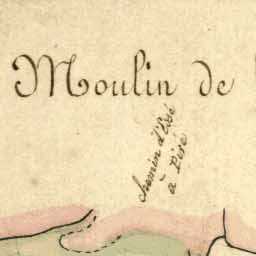 Moulin de
chemin d'Essé
à Piré